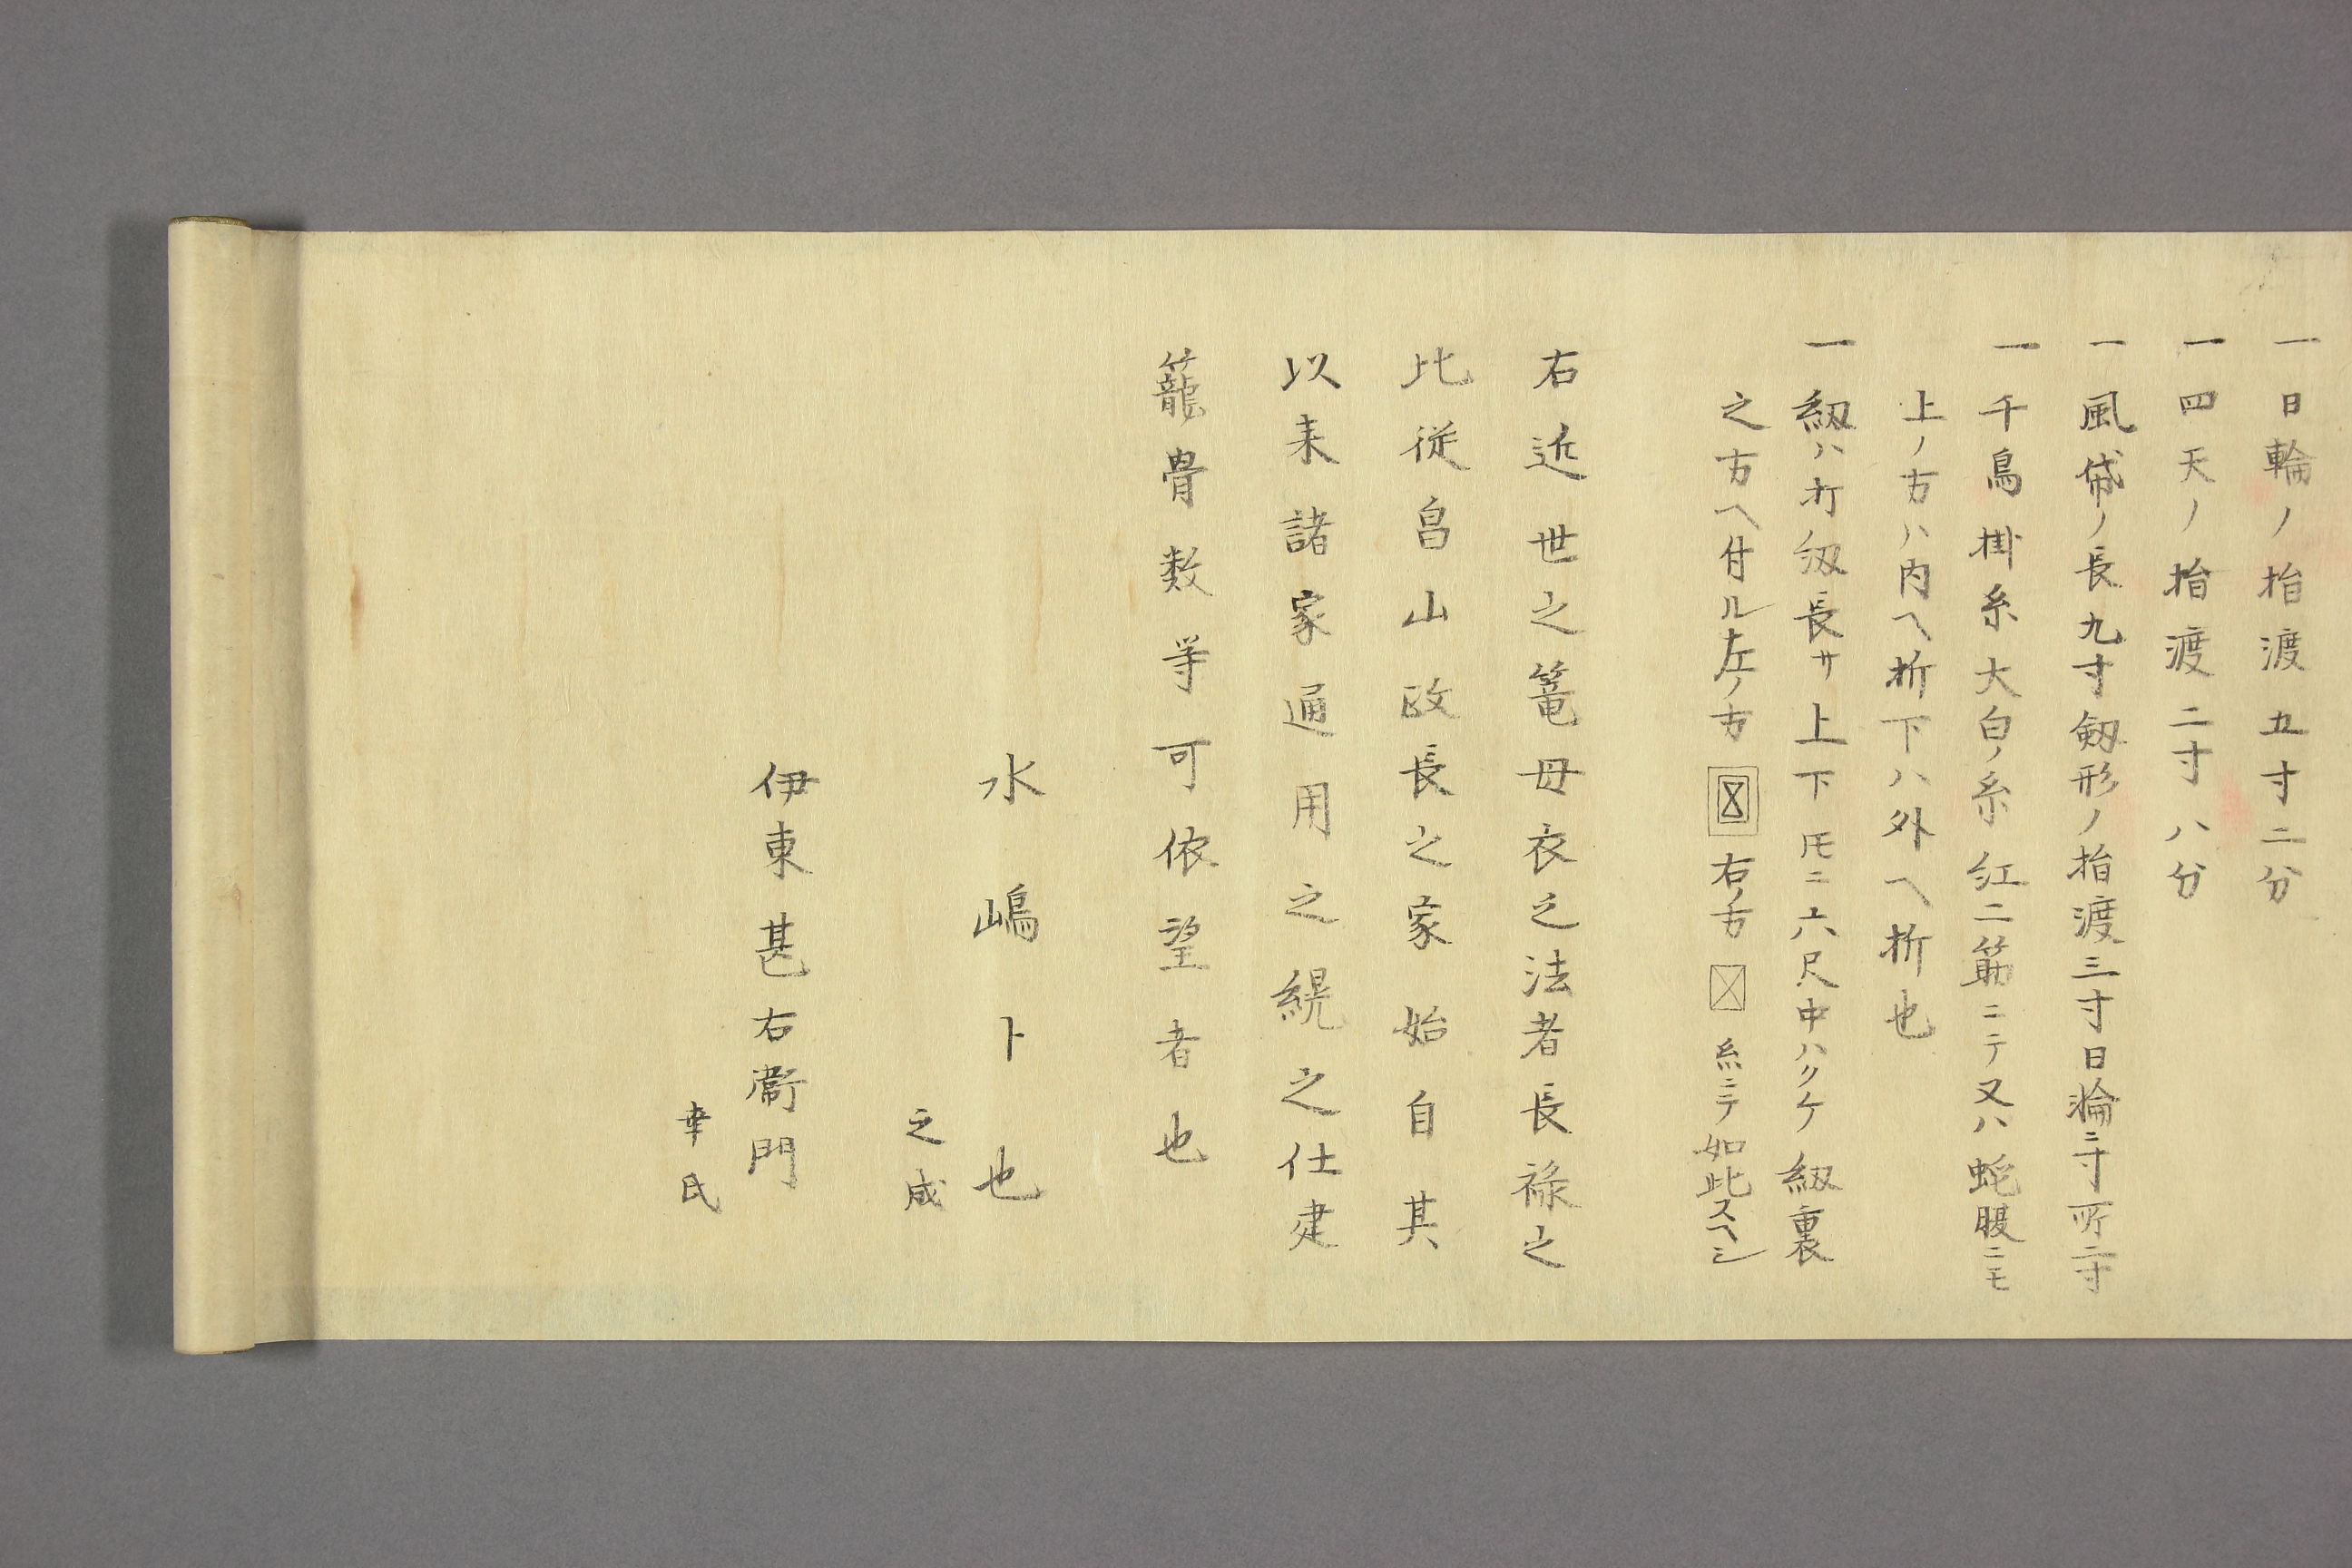 一日輪ノ指渡五寸二分
一四天ノ指渡二寸八分
一風帒ノ長九寸剱形ノ指渡三寸日輪二寸所二寸
一千鳥掛糸大白ノ糸紅二筋ニテ又ハ蛇腹ニモ
上ノ方ハ内ヘ折下ハ外ヘ折也
一紐ハ打紐長サ上下𪜈ニ六尺中ハクケ紐裏
之方ヘ付ル左ノ方右ノ方糸ニテ如此スヘシ
右近世之篭母衣之法者長禄之
比従畠山政長之家始自其
以来諸家通用之縨之仕建
籠骨数等可依望者也
水嶋卜也
之成
伊東甚右衛門
幸氏